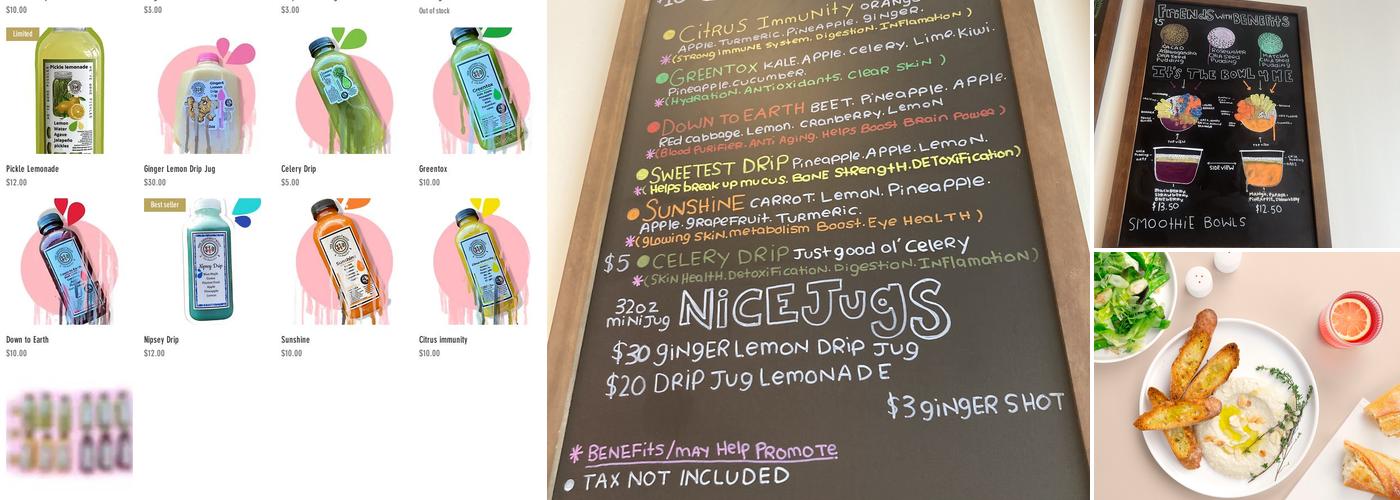 $10.00
$3.00
$3.00
Out of stock
Limited
Pickle lemonade
Lemon
Water
Agave
Jalapeño
pickles
Greentox
Pickle Lemonade
$12.00
Ginger Lemon Drip Jug
$30.00
Celery Drip
$5.00
Greentox
$10.00
Best seller
Nipsey Drip
Sunshine
Down to Earth
$10.00
Nipsey Drip
$12.00
Sunshine
$10.00
Citrus immunity
$10.00
Citrus Immunity ORANGE
APPLE. TURMERIC. PINEAPPLE. GINGER.
*(STRONG IMMUNE SYSTEM. DIGESTION. INFLAMATION)
GREENTOX KALE. APPLE. CELERY. LIME. KIWI.
PINEAPPLE. CUCUMBER.
*(HYDRATION. ANTIOXIDANTS. CLEAR SKIN)
DOWN TO EARTH BEET. PINEAPPLE. APPLE.
RED CABBAGE. LEMON. CRANBERRY. LEMON
*(BLOOD PURIFIER. ANTI AGING. HELPS BOOST BRAIN POWER)
SWEETEST DRIP PINEAPPLE. APPLE. LEMON.
*(HELPS BREAK UP MUCUS. BONE STRENGTH. DETOXIFICATION)
SUNSHINE CARROT. LEMON. PINEAPPLE.
APPLE. GRAPEFRUIT. TURMERIC.
*(GLOWING SKIN. METABOLISM BOOST. EYE HEALTH)
$5 CELERY DRIP Just good ol' Celery
*(SKIN HEALTH. DETOXIFICATION. DIGESTION. INFLAMATION)
32oz
miNi Jug NiCE JugS
$30 giNgER LEMON DRiP Jug
$20 DRiP Jug LEMONADE
$3 giNgER SHOT
* BENEFiTS/may Help PROMOTE
TAX NOT INCLUDED
FRiENDS WITH BENEFITS
$5
CACAO
Ashwagandha
CHIA SEED
Pudding
Rosewater
CHIA SEED
Pudding
MATCHA
CHIA SEED
Pudding
IT'S THE BOWL 4 ME
TOP VIEW
TOP VIEW
SIDE VIEW
Blackberry
Strawberry
Blueberry
$13.50
$12.50
SMOOTHiE BOWLS